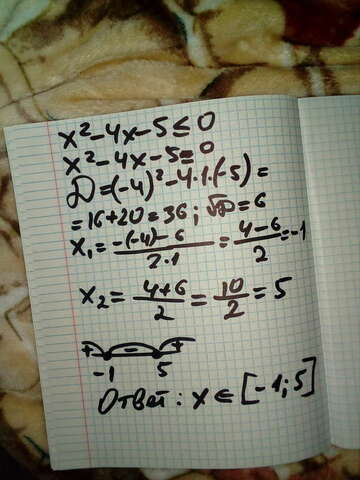 x²-4x-5≤0
x²-4x-5=0
D=(-4)²-4·1·(-5)=
=16+20=36; √D=6
x₁=\frac{-(-4)-6}{2·1}=\frac{4-6}{2}=-1
x₂=\frac{4+6}{2}=\frac{10}{2}=5
+ - +
-1 5
Ответ: x∈[-1;5]